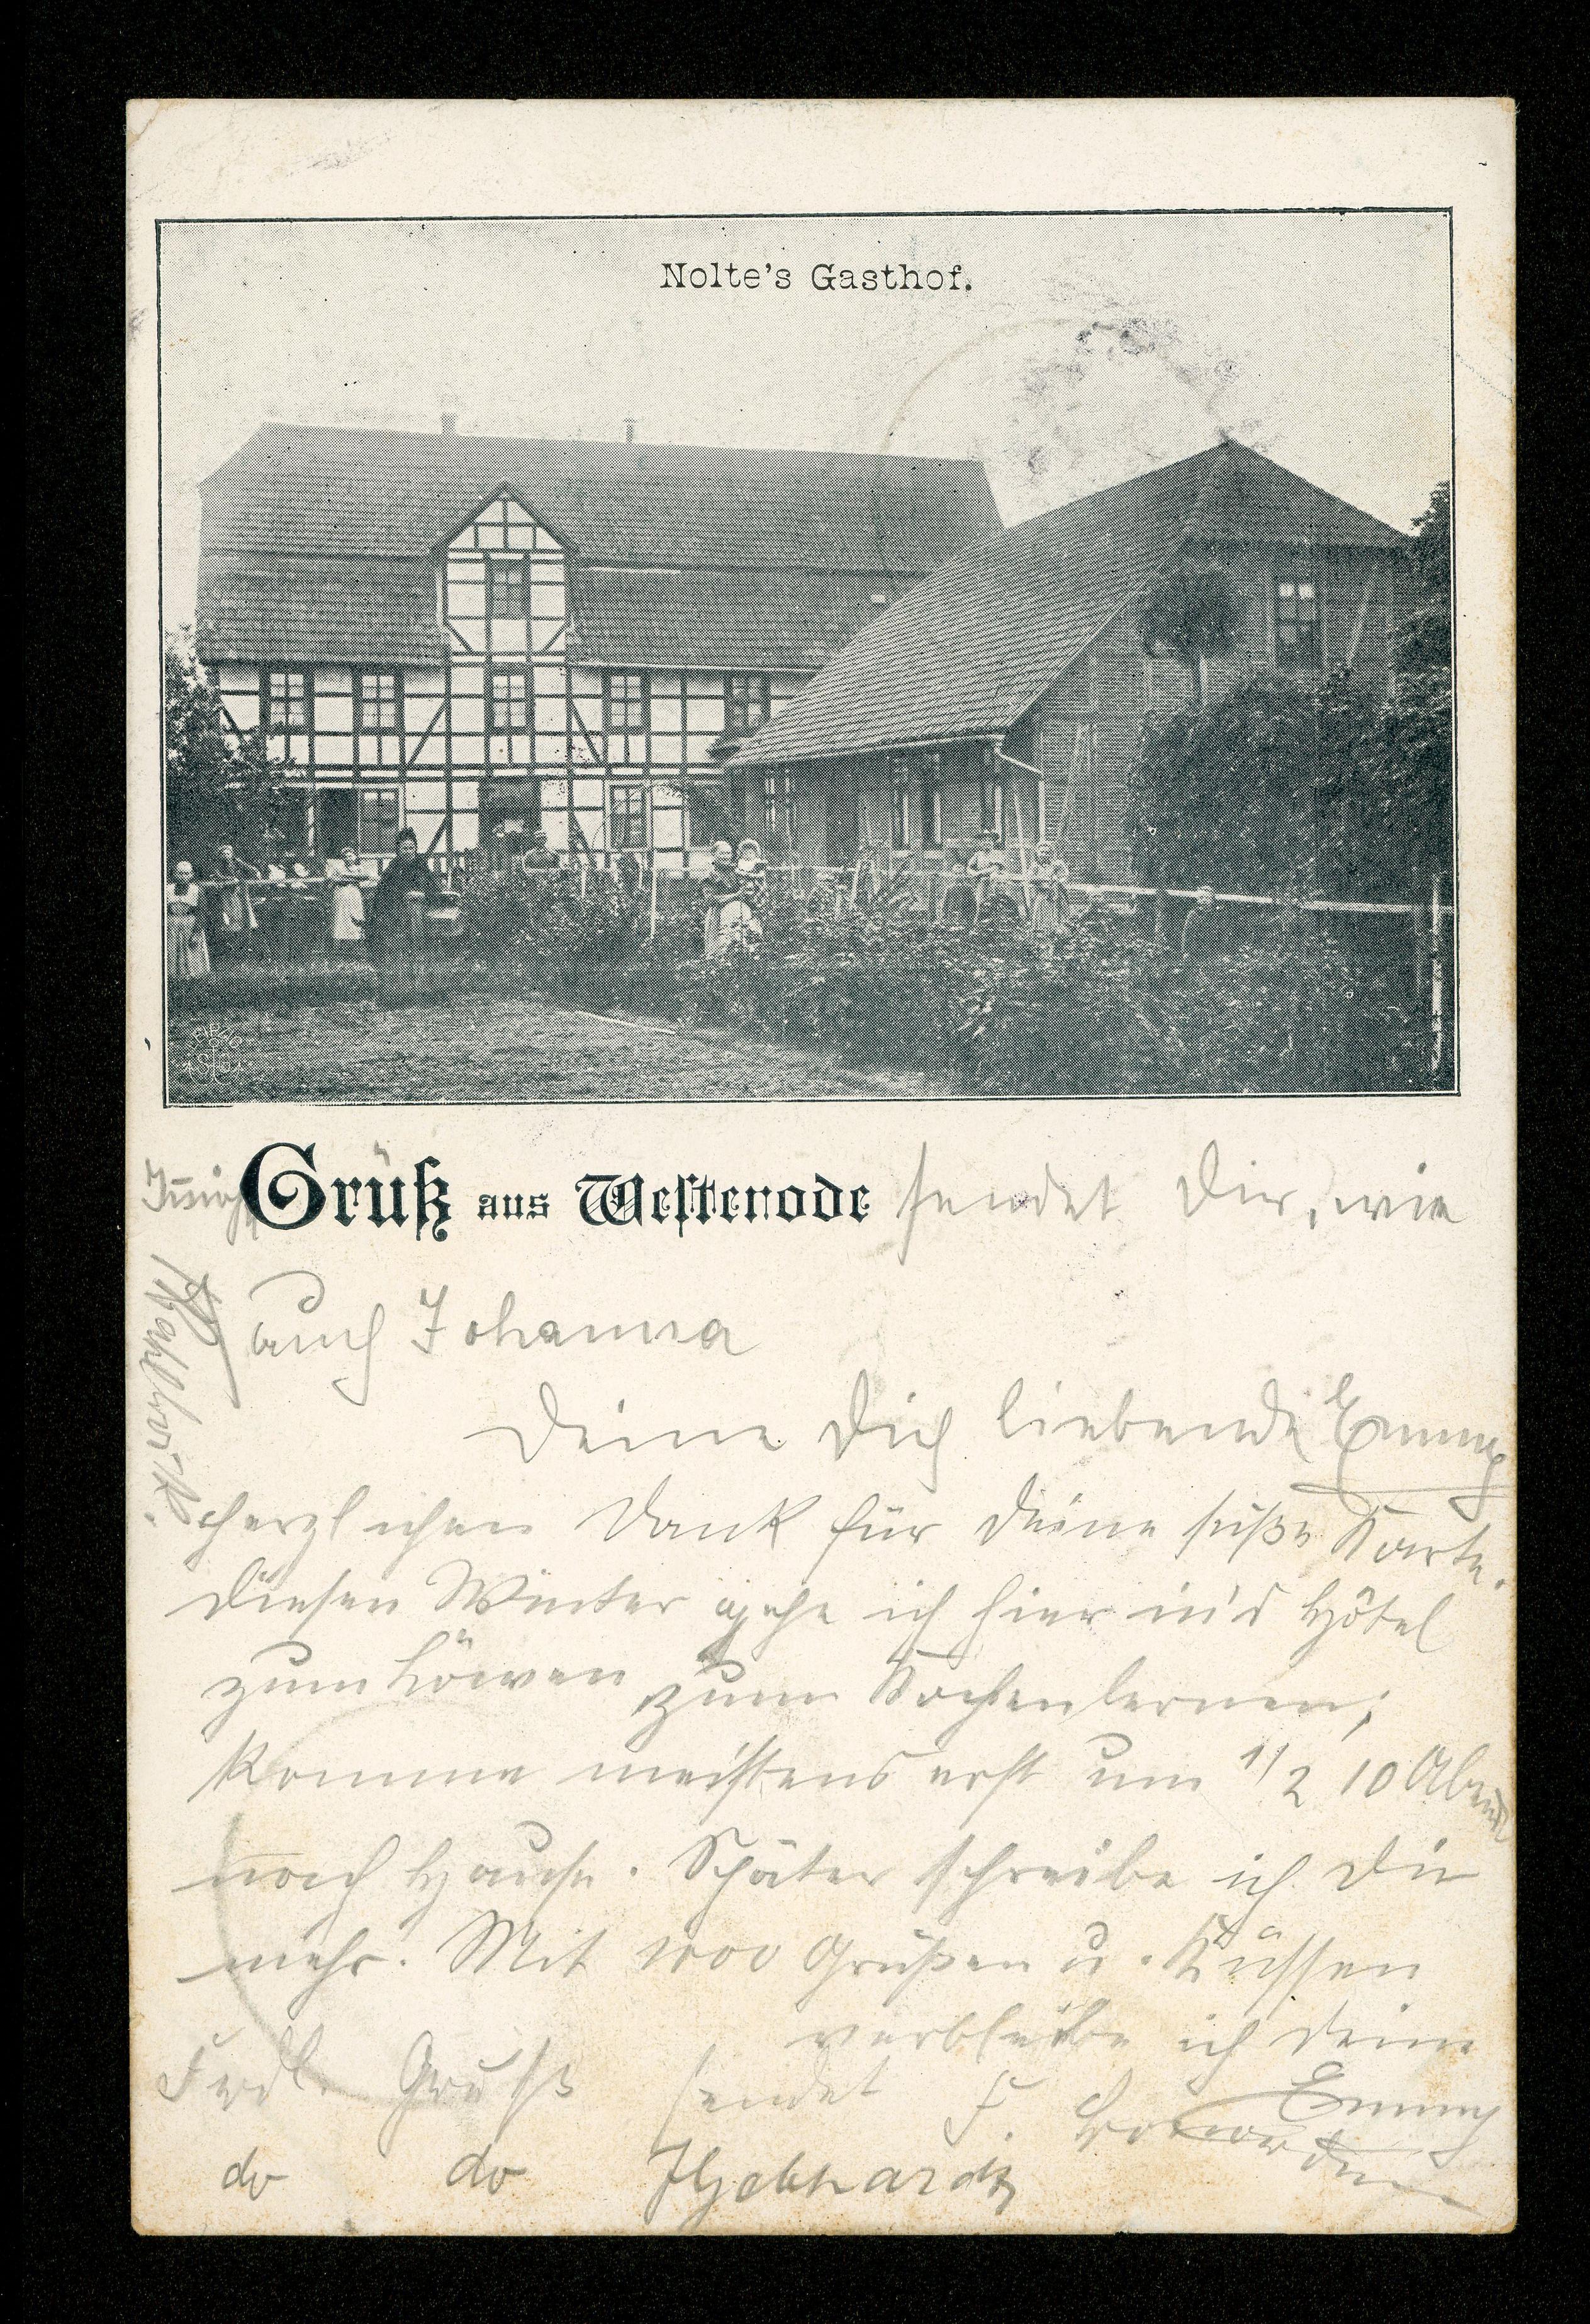 Nolte's Gasthof.
Innige Grüße aus Westerode sendet Dir, wie
auch Johanna
Deine Dich liebende Emmy
Herzlichen Dank für Deine süße Karte.
Diesen Winter gehe ich hier in's Hôtel
zum Löwen zum Kochenlernen;
komme meistens erst um 1/2 10 Abends
nach Hause. Später schreibe ich Dir
mehr. Mit 1000 Grüßen u. Küssen
verbleibe ich Deine
Emmy
Frdl. Gruß sendet F.
do do Gebhardt